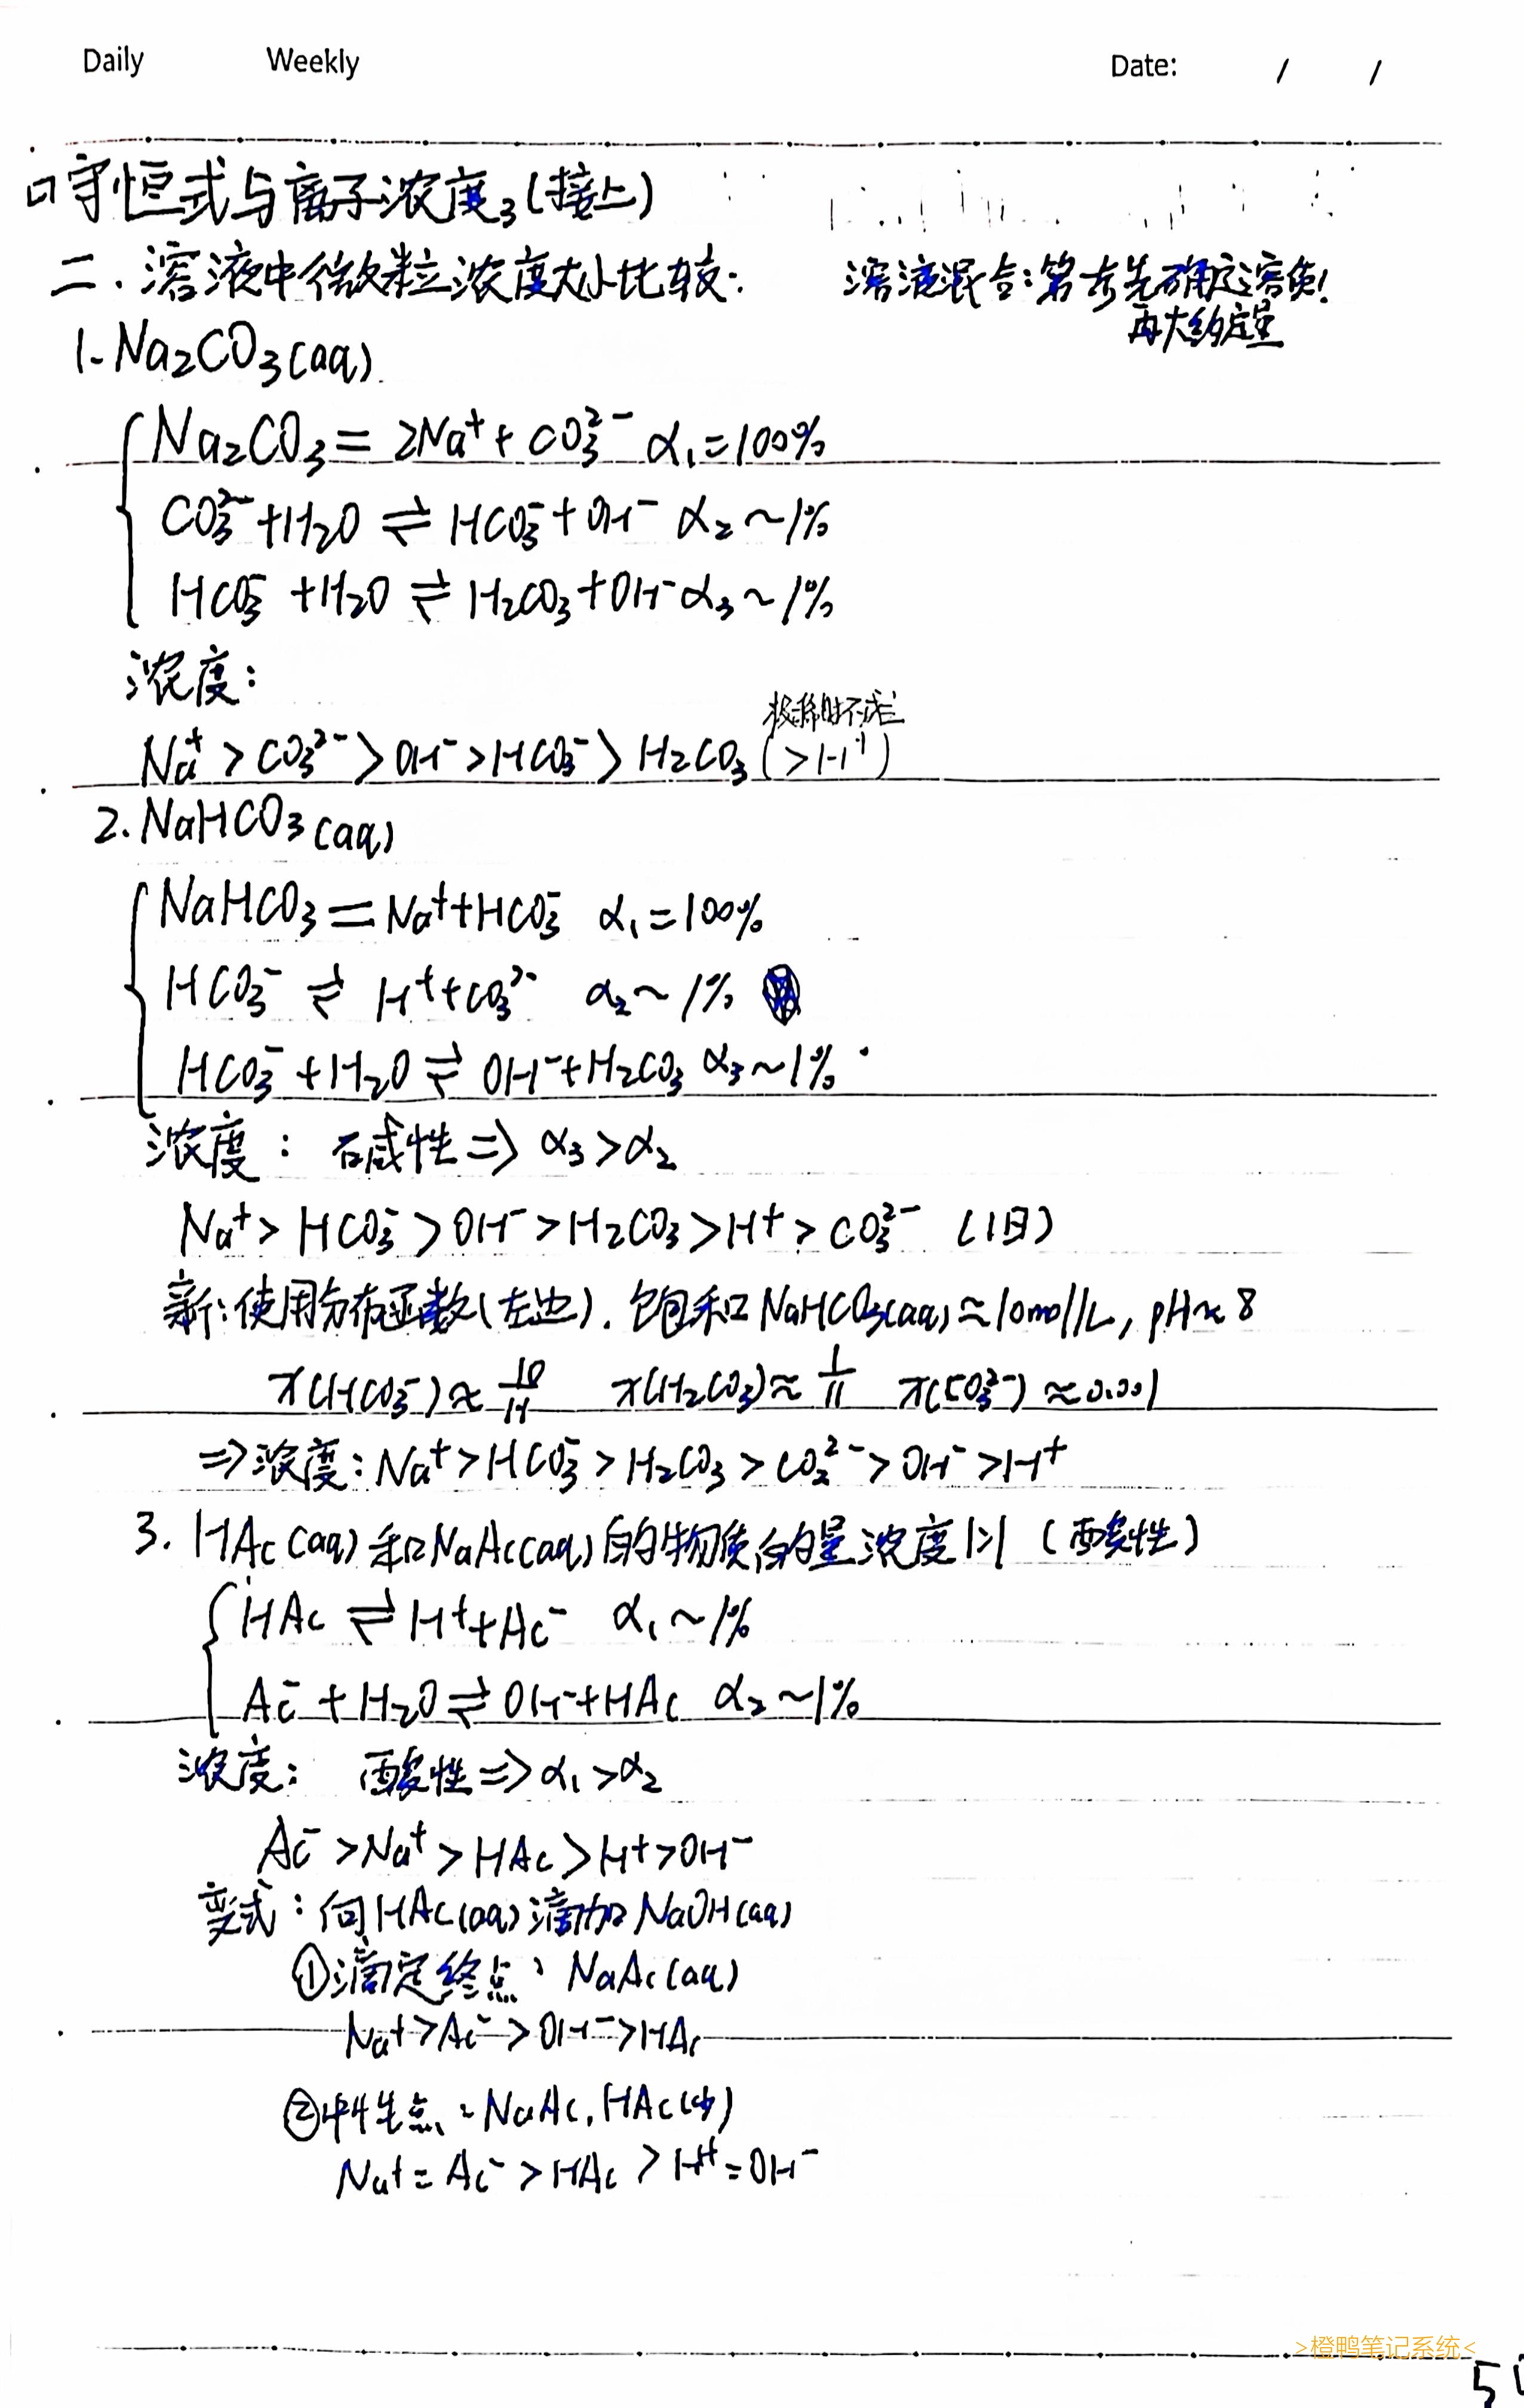 Daily Weekly Date: / /
守恒式与离子浓度₃(接上)
二.溶液中微粒浓度大小比较: 溶液混合:第一步先确定溶质!
再大约定量
1. Na₂CO₃(aq)
Na₂CO₃ = 2Na⁺ + CO₃²⁻ α₁=100%
CO₃²⁻+H₂O ⇌ HCO₃⁻+OH⁻ α₂~1%
HCO₃⁻+H₂O ⇌ H₂CO₃+OH⁻ α₃~1%
浓度:
极稀时不成立
Na⁺>CO₃²⁻>OH⁻>HCO₃⁻>H₂CO₃(>H⁺)
2. NaHCO₃(aq)
NaHCO₃ = Na⁺+HCO₃⁻ α₁=100%
HCO₃⁻ ⇌ H⁺+CO₃²⁻ α₂~1%
HCO₃⁻+H₂O ⇌ OH⁻+H₂CO₃ α₃~1%
浓度: 碱性⇒α₃>α₂
Na⁺>HCO₃⁻>OH⁻>H₂CO₃>H⁺>CO₃²⁻ (旧)
新:使用分布函数(左边).饱和NaHCO₃(aq)≈10mol/L, pH≈8
π(HCO₃⁻)≈10/11 π(H₂CO₃)≈1/11 π(CO₃²⁻)≈0.001
⇒浓度:Na⁺>HCO₃⁻>H₂CO₃>CO₃²⁻>OH⁻>H⁺
3. HAc(aq)和NaAc(aq)的物质的量浓度1:1 (酸性)
HAc ⇌ H⁺+Ac⁻ α₁~1%
Ac⁻+H₂O ⇌ OH⁻+HAc α₂~1%
浓度: 酸性⇒α₁>α₂
Ac⁻>Na⁺>HAc>H⁺>OH⁻
变式:向HAc(aq)滴加NaOH(aq)
①滴定终点:NaAc(aq)
Na⁺>Ac⁻>OH⁻>HAc
②中性点:NaAc,HAc(少)
Na⁺=Ac⁻>HAc>H⁺=OH⁻
>橙鸭笔记系统<